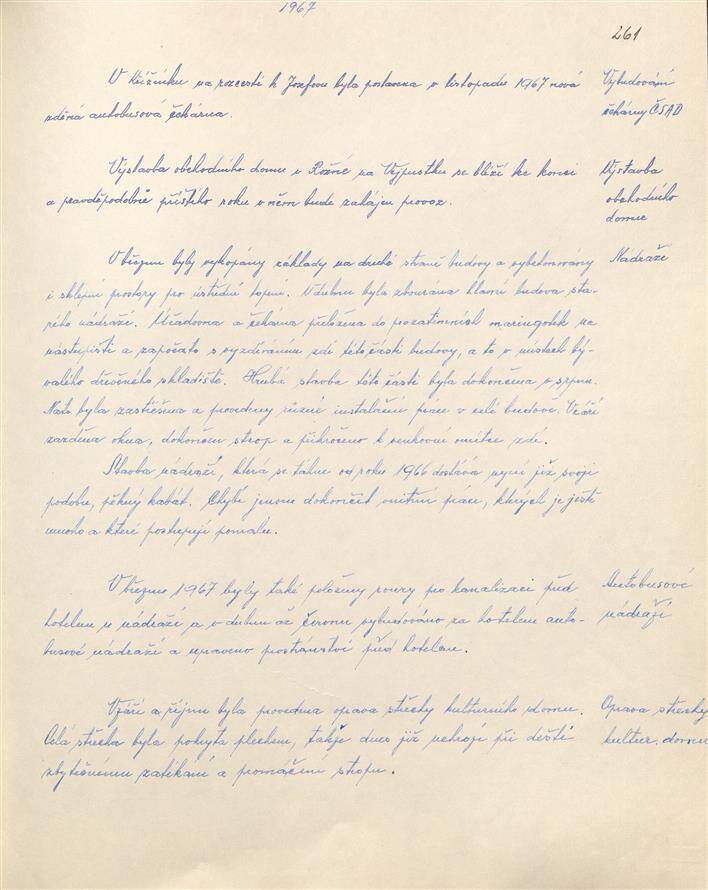 1967
261
V Křížínku na rozcestí k Josefovu byla postavena v listopadu 1967 nová
zděná autobusová čekárna.
Vybudování
čekárny ČSAD
Výstavba obchodního domu v Rožné na Výpustku se blíží ke konci
a pravděpodobně příštího roku v něm bude zahájen provoz.
Výstavba
obchodního
domu
V březnu byly vykopány základy na druhé straně budovy a vybetonovány
i sklepní prostory pro ústřední topení. V dubnu byla zbourána hlavní budova sta-
rého nádraží. Úřadovna a čekárna přeložena do prozatimních maringotek na
nástupišti a započato s vyzdíváním zdí této části budovy, a to v místech bý-
valého dřevěného skladiště. Hrubá stavba této části byla dokončena v srpnu.
Nato byla zastřešena a provedeny různé instalační práce v celé budově. V září
zazděna okna, dokončen strop a přikročeno k venkovní omítce zdí.
Nádraží
Stavba nádraží, která se táhne od roku 1966 dostává nyní již svoji
podobu, pěkný kabát. Chybí jenom dokončit vnitřní práce, kterých je ještě
mnoho a které postupují pomalu.
V březnu 1967 byly také položeny roury po kanalizaci před
hotelem u nádraží a v dubnu až červnu vybudováno za hotelem auto-
busové nádraží a upraveno prostranství před hotelem.
Autobusové
nádraží
V září a říjnu byla provedena oprava střechy kulturního domu.
Celá střecha byla pokryta plechem, takže dnes již nehrozí při dešti
zbytečnému zatékání a promáčení stropu.
Oprava střechy
kultur. domu